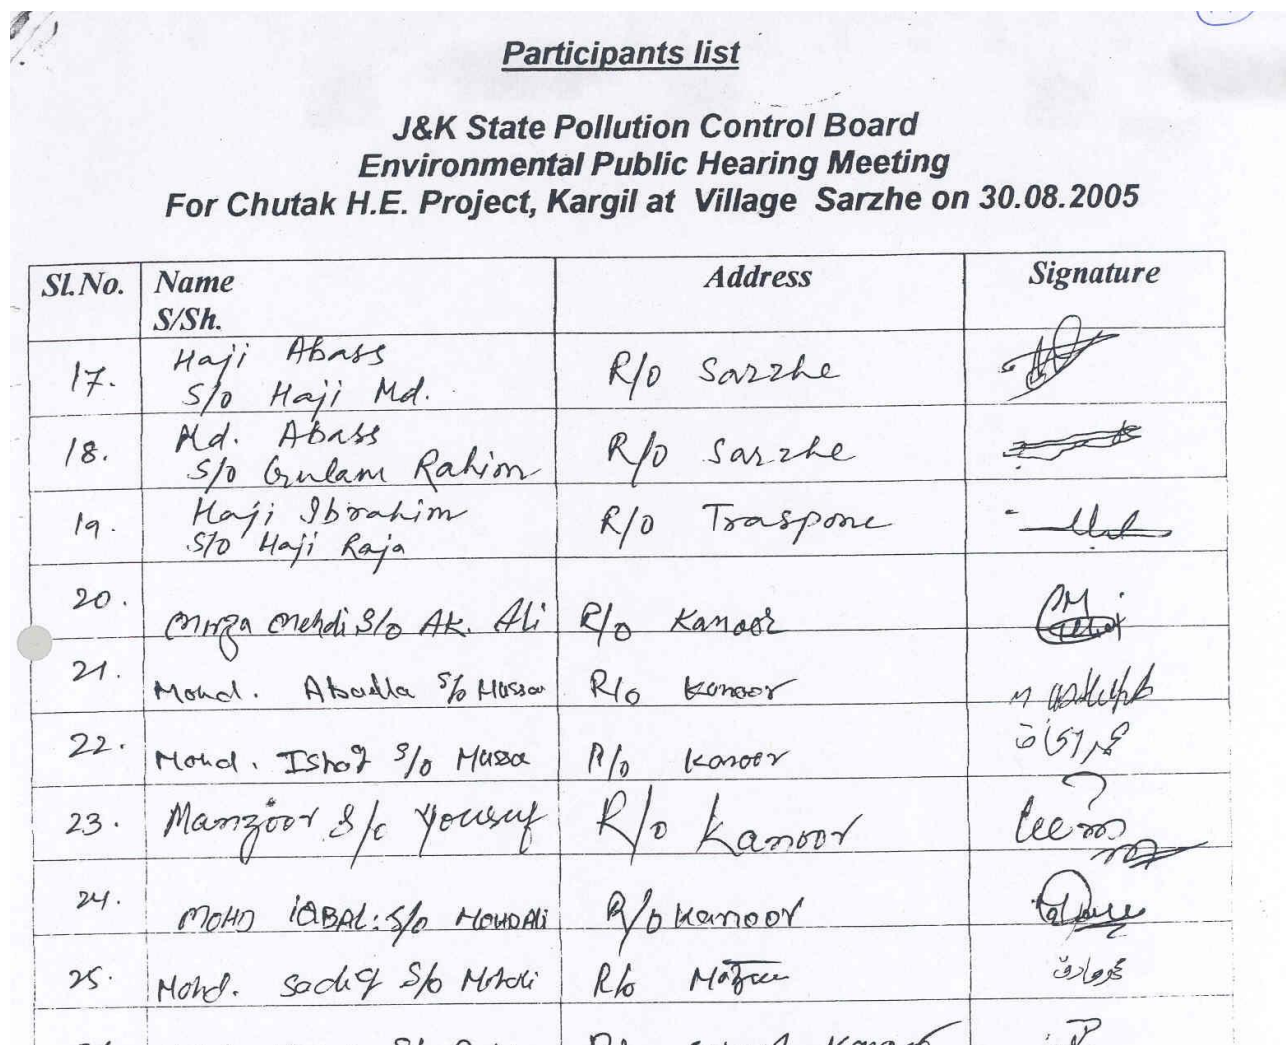 Participants list
J&K State Pollution Control Board
Environmental Public Hearing Meeting
For Chutak H.E. Project, Kargil at Village Sarzhe on 30.08.2005
Sl.No. Name Address Signature
S/Sh.
17. Haji Abass R/o Sarzhe
S/o Haji Md.
18. Md. Abass R/o Sarzhe
S/o Gulam Rahim
19. Haji Ibrahim R/o Traspone
S/o Haji Raja
20. Mirza Mehdi S/o Ak. Ali R/o Kanoor
21. Mohd. Abadla S/o Hassan R/o Kanoor
22. Mohd. Ishaq S/o Mussa R/o Kanoor
23. Manzoor S/o Yousuf R/o Kanoor
24. MOHD iQBAL: S/o MOHD Ali R/o Kanoor
25. Mohd. Sadiq S/o R/o